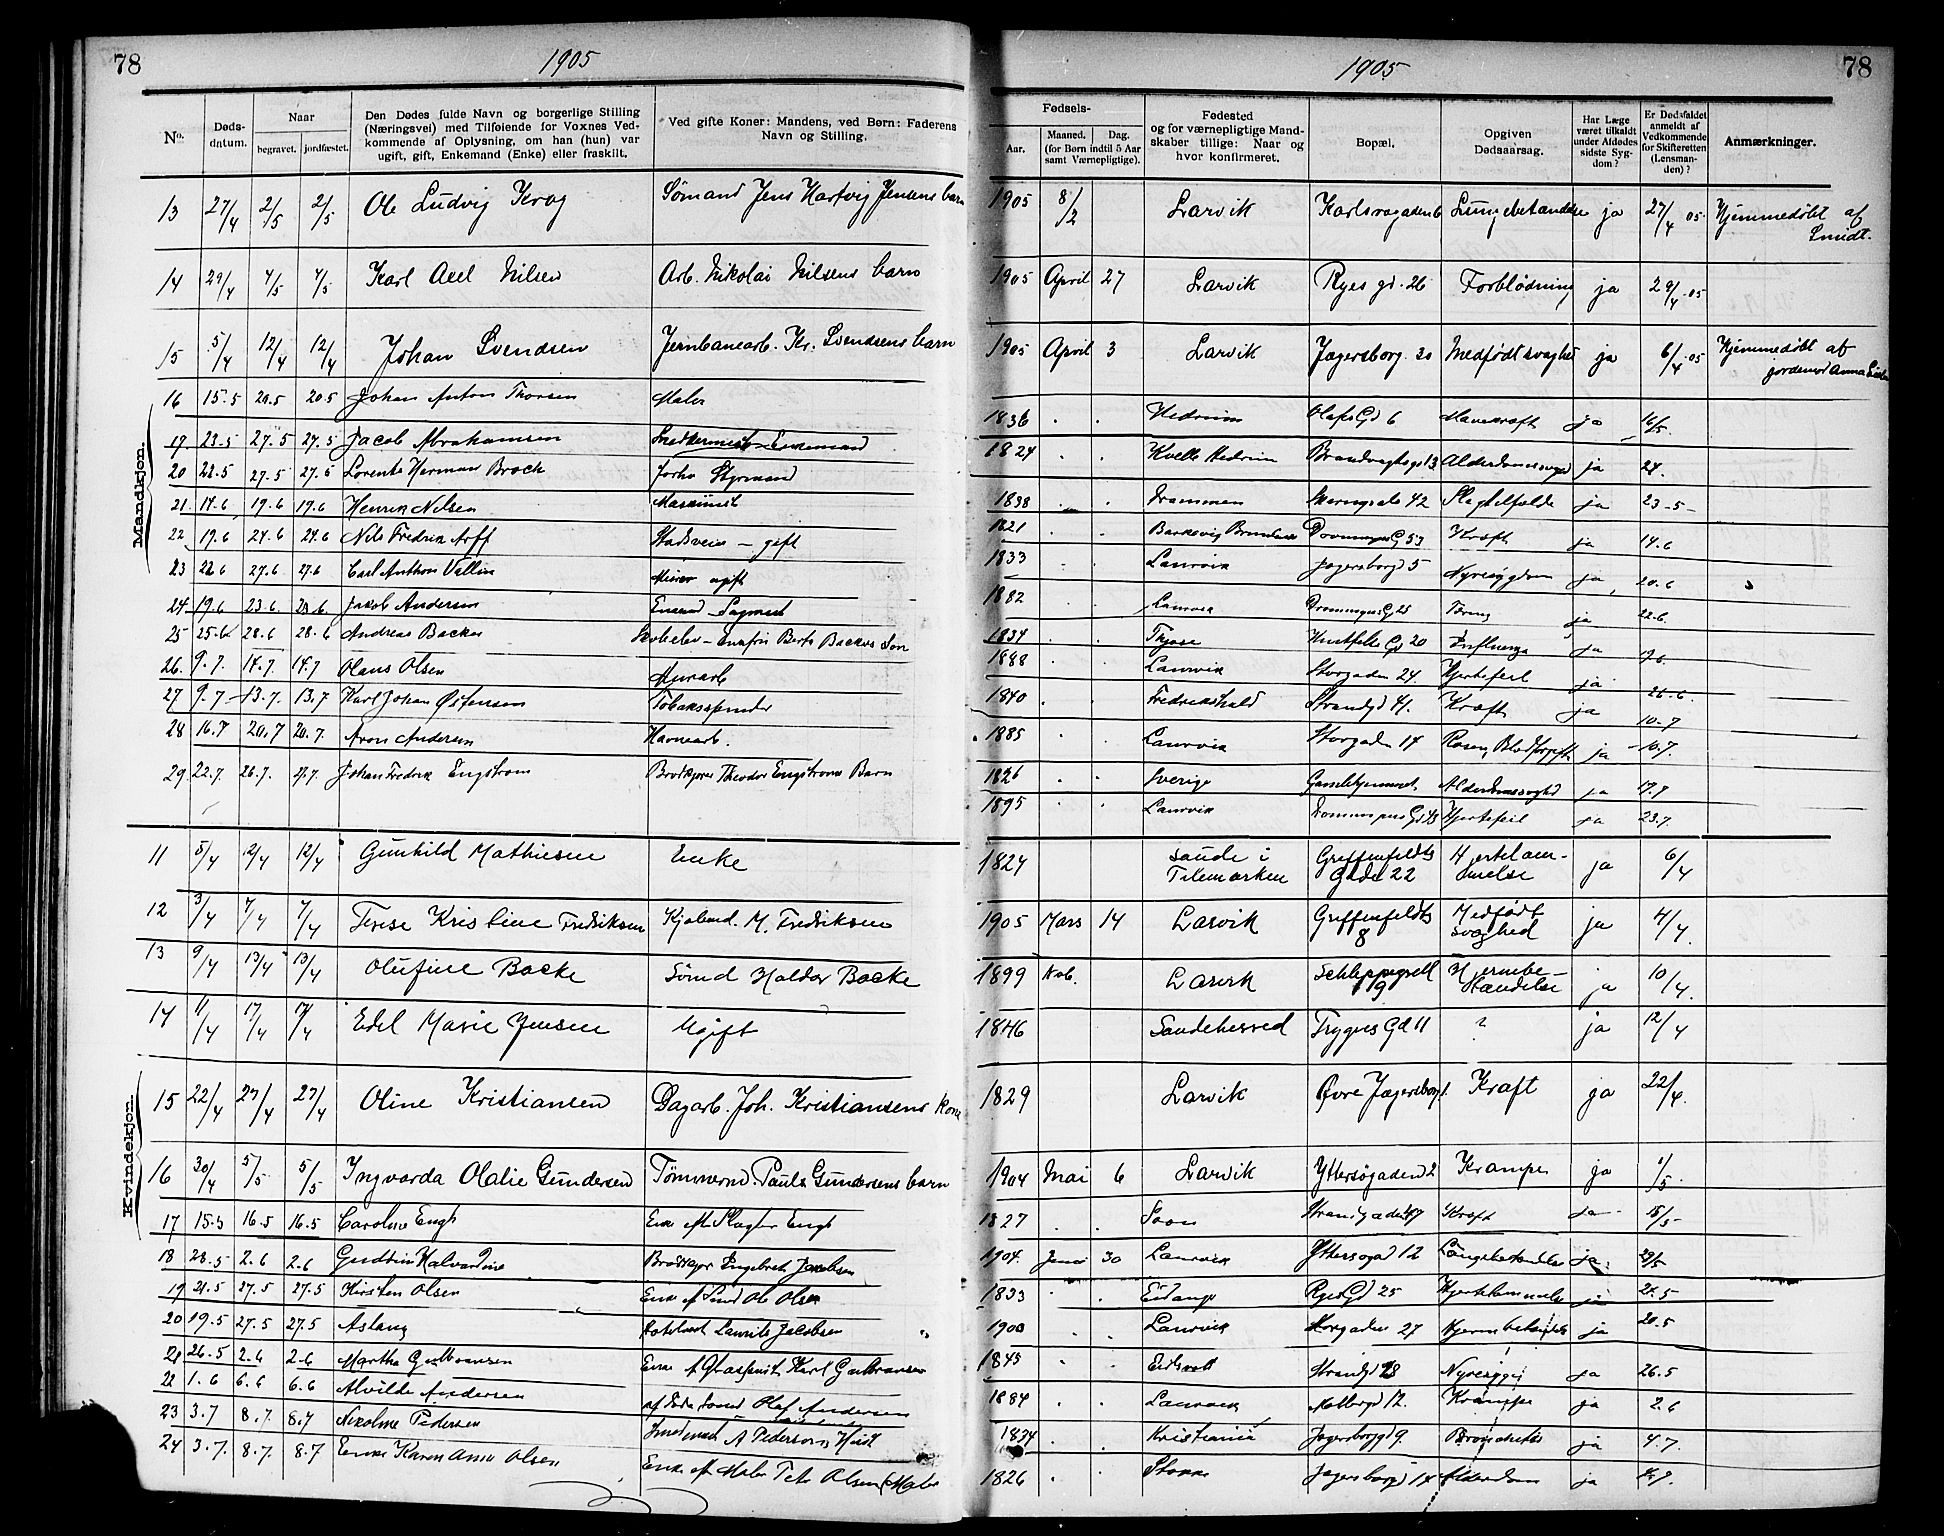 78
1905
No.
Døds-
datum.
Naar
begravet.
jordfæstet.
Den Dødes fulde Navn og borgerlige Stilling
(Næringsvei) med Tilføiende for Voxnes Ved-
kommende af Oplysning, om han (hun) var
ugift, gift, Enkemand (Enke) eller fraskilt.
Ved gifte Koner: Mandens, ved Børn: Faderens
Navn og Stilling.
Mandkjøn.
13 27/4 2/5 2/5 Ole Ludvig Krog Sømand Jens Hartvig Jensens barn
14 29/4 4/5 4/5 Karl Axel Nilsen Arb. Nikolai Nilsens barn
15 5/4 12/4 12/4 Johan Svendsen Jernbanearb. Kr. Svendsens barn
16 15.5 20.5 20.5 Johan Anton Thorsen Maler
19. 23.5 27.5 27.5 Jacob Abrahamsen Enkemand
20 22.5 27.5 27.5 Lorents Herman Brock Styrmand
21 14.6 19.6 19.6 Henrik Nilsen Maskinist
22 19.6 24.6 24.6 Nils Fredrik Arff gift
23 22.6 27.6 27.6 Carl Anthon Vallin
24 19.6 23.6. Jakob Andersen
25 25.6 28.6 28.6 Andreas Backe Søn
26. 9.7. 14.7. 14.7 Olaus Olsen Murarb
27 9.7 13.7. 13.7 Karl Johan Østensen Tobaksspinder
28 16.7 20.7 20.7. Aron Andersen Havnearb.
29. 22.7. 26.7. Johan Fredrik Engstrøm Brødkjører Theodor Engstrøms Barn
Kvindekjøn.
11 5/4 12/4 12/4 Gunhild Mathiesen Enke
12 3/4 7/4 7/4 Terese Kristine Fredriksen Kjøbmd. M. Fredriksen
13 9/4 13/4 13/4 Olufine Backe Sømd Haldor Backe
14 11/4 17/4 17/4 Edel Marie Jensen Ugift
15 22/4 27/4 27/4 Oline Kristiansen Dagarb. Joh. Kristiansens kone
16 30/4 5/5 5/5 Ingvarda Olalie Gundersen Tømmermd. Paul Gundersens barn
17 16.5 16.5 Caroline Engh Enke eft Slagter Engh
18 28.5 2.6 2.6 Halvardine Brødkjører Engebret Jacobsen
19 21.5 27.5 27.5 Kirsten Olsen Enke Ole Olsen
20 19.5 27.5 27.5 Aslaug Laurits Jacobsen
21 26.5 2.6 2.6 Martha Gulbransen Enke Karl Gulbransen
22 1.6 6.6 6.6 Alvilde Andersen Olaf Andersen
23 3.7 8.7. 8.7 Nikoline Pedersen A Pedersens
24 3.7. 8.7. 8.7 Enke Karen Anna Olsen Enke eft Maler Olsen (Maler
1905
78
Fødsels-
Aar.
Maaned.
Dag.
(for Børn indtil 5 Aar
samt Værnepligtige).
Fødested
og for værnepligtige Mand-
skaber tillige: Naar og
hvor konfirmeret.
Bopæl.
Opgiven
Dødsaarsag.
Har Læge
været tilkaldt
under Afdødes
sidste Syg-
dom?
Er Dødsfaldet
anmeldt af
Vedkommende
for Skifteretten
(Lensman-
den)?
Anmærkninger.
1905 8/2 Larvik Karlsrogaden 6 Lungebetændelse ja 27/4 05 Hjemmedøbt af
Smidt.
1905 April 27 Larvik Ryes gd. 26 Forblødning ja 29/4.05
1905 April 3 Larvik Jægersborg. 20 Medfødt svaghet ja 6/4.05 Hjemmedøbt af
jordemor Anna
1836 Hedrum Olafs Gd 6 Mavekræft ja 16/5.
1824 Kvelle Hedrum Alderdomssvaghed ja 24.
1838 Drammen 42 Slagtilfælde ja 23-5-
1821 Kræft ja 14.6
1833 Laurvik Jægersborgd 5 Nyresygdom ja 20.6
1882 Laurvik Tæring ja 22.6.
1834 Tjøse 20 Influenza ja
1888 Laurvik Storgaden 24. Hjertefeil ja 26.6
1840 Fredrikshald Strandgd 41. Kræft ja 10.7
1885 Laurvik Storgaden 17 ja 10.7.
1826 Sverige Alderdomssvaghed ja
1895 Laurvik Hjertefeil ja 23.7.
1824 Saude i
Telemarken Griffenfeldts
Gade 22 Hjertelam-
melse ja 6/4
1905 Mars 14 Larvik Griffenfeldts
8 Medfødt
svaghed ja 4/4.
1899 Larvik Schleppegrell
19 Hjernebe-
tændelse ja 10/4.
1846 Sandeherred Trygves Gd 11 ? ja 12/4
1829 Larvik Øvre Jægersborg 1. Kræft ja 22/4.
1904 Mai 6 Larvik Yttersøgaden 2 Krampe ja 1/5.
1827 Kræft ja
1904. Juni 30 Laurvik Yttersøgd 12 Lungebetændelse ja.
1833 Eidanger Ryes Gd 25 Hjertelammelse ja
1900 Laurvik 27 Hjernebetændelse ja 20.5
1843 Eidsvold Nyresyge ja 26.5
1884 Laurvik 12. Krampe ja 2.6
Kristiania Jægersborggd 9. Bronchitis ja 4.7.
1826 Stokke Jægersborgd Alderdom ja